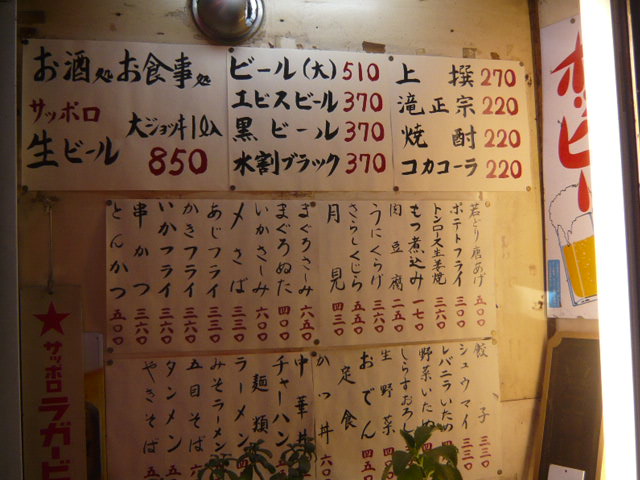 お酒処お食事処
サッポロ
生ビール
大ジョッキ1ℓ入
850
ビール(大)510
エビスビール370
黒ビール370
水割ブラック370
上撰270
滝正宗220
焼酎220
コカコーラ220
若どり唐あげ 五〇〇
ポテトフライ 三〇〇
もつ煮込み 一七〇
肉豆腐 二五〇
うにくらげ 三六〇
さらしくじら 五五〇
月見 四三〇
まぐろさしみ 六五〇
まぐろぬた 四〇〇
いかさしみ 六〇〇
〆さば 三三〇
あじフライ 三三〇
かきフライ 三六〇
いかフライ 三三〇
串かつ 三六〇
とんかつ 五〇〇
餃子 三三〇
シュウマイ 三三〇
レバニラいため
野菜いため
しらすおろし
生野菜
おでん
定食
かつ丼
中華丼
チャーハン
麺類
ラーメン
みそラーメン
五目そば
タンメン
やきそば
ホッピー
★サッポロラガービ